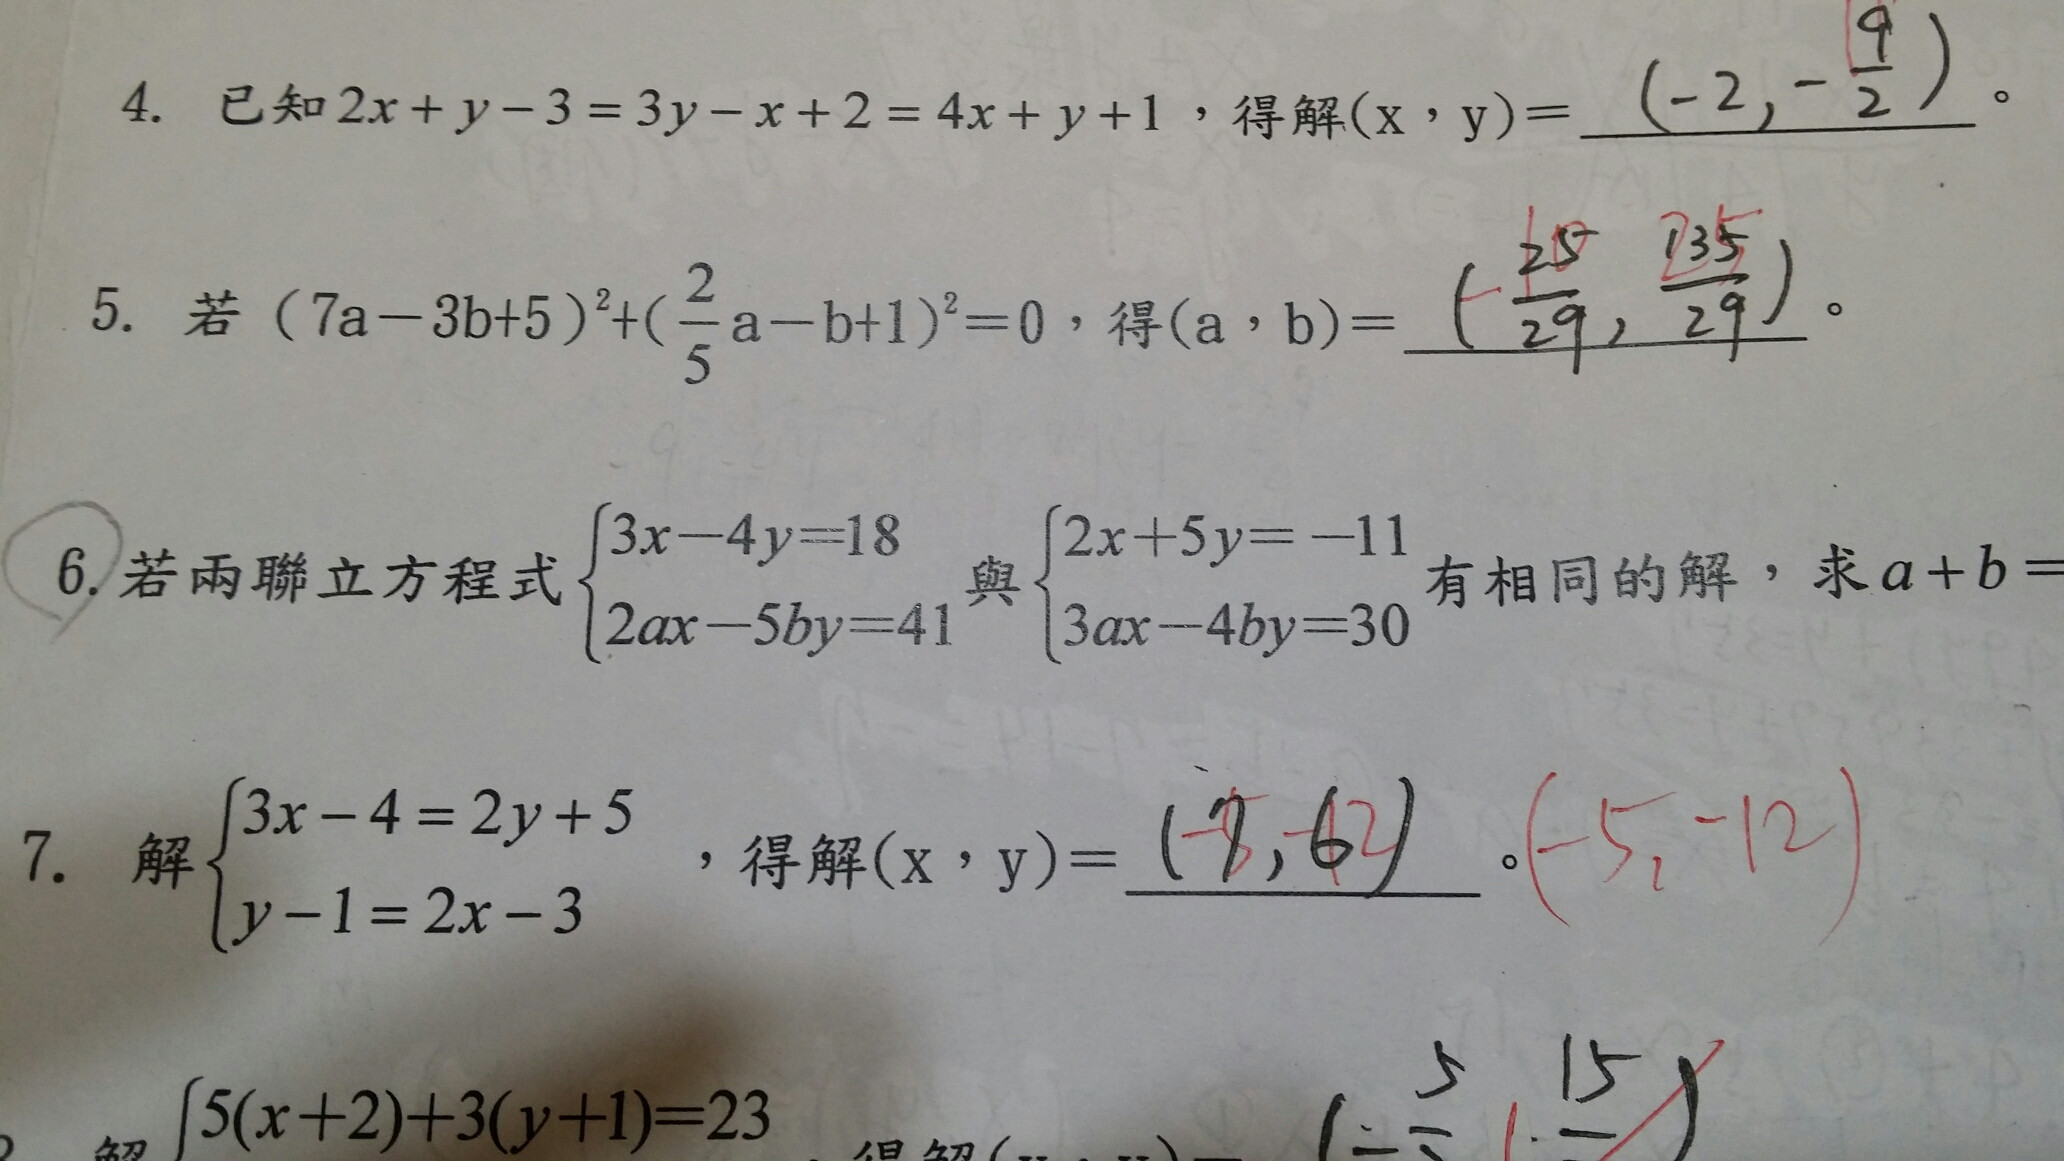 4. 已知 2x + y − 3 = 3y − x + 2 = 4x + y + 1，得解(x，y)= (-2, -9/2)。
5. 若（7a－3b+5）²+(2/5 a－b+1)²=0，得(a，b)= (-25/29, 135/29)。
6. 若兩聯立方程式{3x－4y=18 2ax－5by=41 與{2x＋5y= －11 3ax－4by=30 有相同的解，求 a + b =
7. 解{3x − 4 = 2y + 5 y − 1 = 2x − 3，得解(x，y)= (7, 6)。(-5, -12)
解{5(x+2)+3(y+1)=23，得解(x，y)= (- 5 15 )